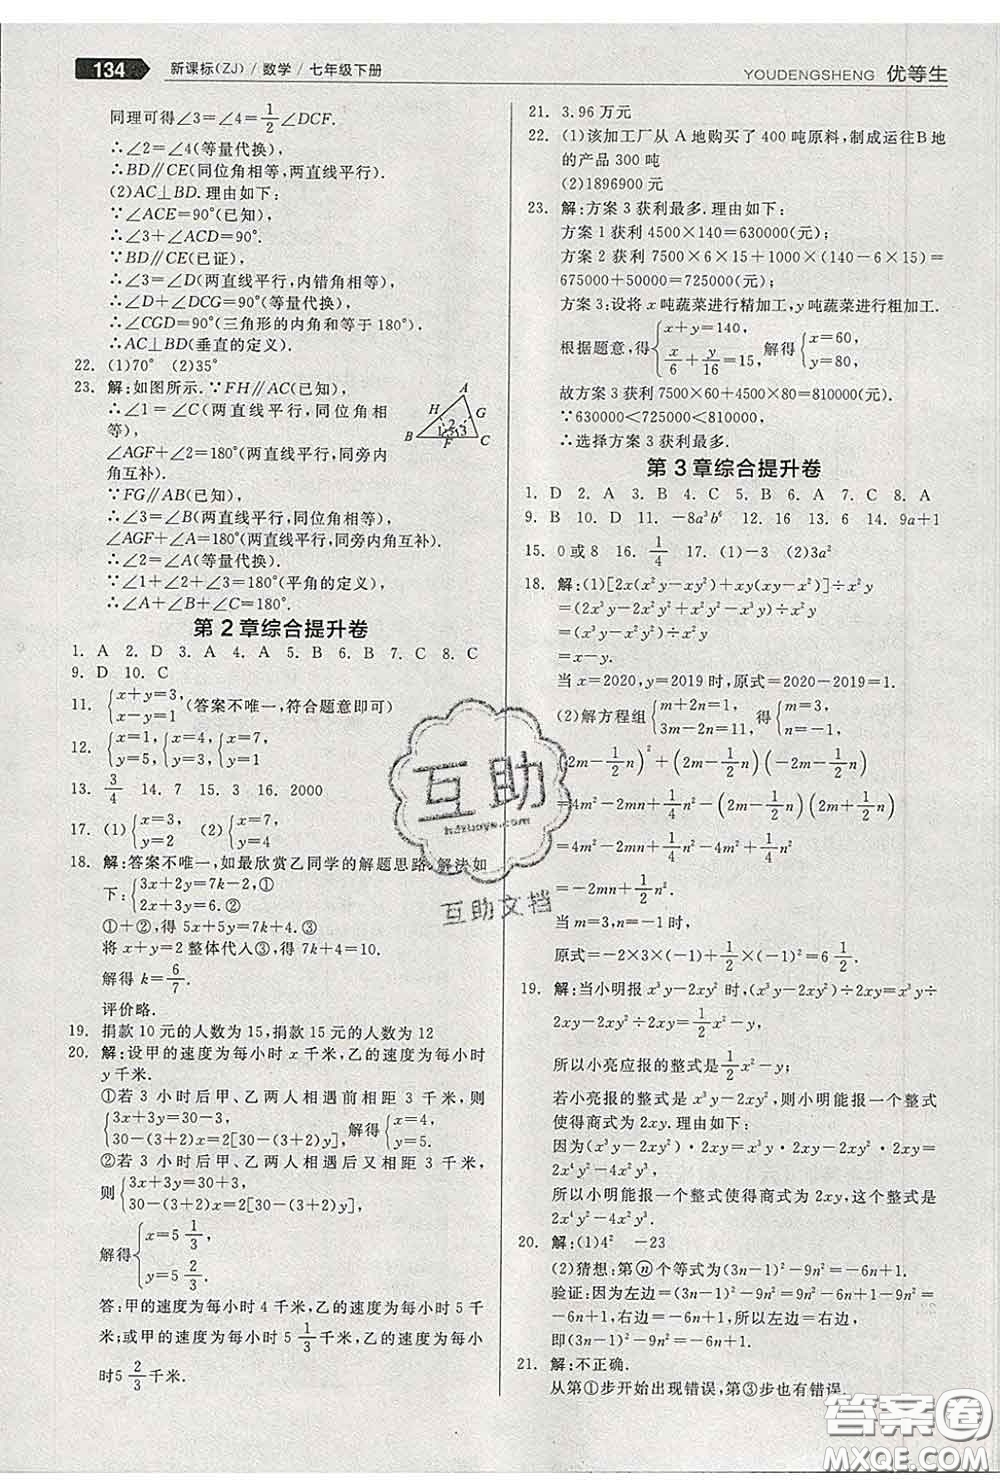 134 新课标(ZJ)/数学/七年级下册
YOUDENGSHENG 优等生
同理可得∠3=∠4=1/2∠DCF.
∴∠2=∠4(等量代换),
∴BD∥CE(同位角相等,两直线平行).
(2)AC⊥BD.理由如下:
∵∠ACE=90°(已知),
∴∠3+∠ACD=90°.
∵BD∥CE(已证),
∴∠3=∠D(两直线平行,内错角相等),
∴∠D+∠DCG=90°(等量代换),
∴∠CGD=90°(三角形的内角和等于180°),
∴AC⊥BD(垂直的定义).
22. (1)70° (2)35°
23. 解:如图所示.∵FH∥AC(已知),
∴∠1=∠C(两直线平行,同位角相
等),
∠AGF+∠2=180°(两直线平行,同旁
内角互补).
∵FG∥AB(已知),
∴∠3=∠B(两直线平行,同位角相等),
∠AGF+∠A=180°(两直线平行,同旁内角互补).
∴∠2=∠A(等量代换).
∵∠1+∠2+∠3=180°(平角的定义),
∴∠A+∠B+∠C=180°.
A
H G
1 2 3
B F C
第2章综合提升卷
1. A 2. D 3. A 4. B 5. B 6. B 7. C 8. C
9. D 10. C
11. {x+y=3, x-y=1 (答案不唯一,符合题意即可)
12. {x=1, y=5, {x=4, y=3, {x=7, y=1
13. 3/4 14. 7 15. 3 16. 2000
17. (1){x=3, y=2 (2){x=7, y=4
18. 解:答案不唯一,如最欣赏乙同学的解题思路.解法如
下:{3x+2y=7k-2,① 2x+3y=6.②
①+②,得 5x+5y=7k+4.③
将 x+y=2 整体代人③,得 7k+4=10.
解得 k=6/7.
评价略.
19. 捐款 10 元的人数为 15,捐款 15 元的人数为 12
20. 解:设甲的速度为每小时 x 千米,乙的速度为每小时
y千米.
①若 3 小时后甲、乙两人相遇前相距 3 千米,则
{3x+3y=30-3, 30-(3+2)x=2[30-(3+2)y], 解得{x=4, y=5.
②若 3 小时后甲、乙两人相遇后又相距 3 千米,
则{3x+3y=30+3, 30-(3+2)x=2[30-(3+2)y],
解得{x=5 1/3, y=5 2/3.
答:甲的速度为每小时 4 千米,乙的速度为每小时 5 千
米;或甲的速度为每小时 5 1/3 千米,乙的速度为每小
时5 2/3 千米.
21. 3.96 万元
22. (1)该加工厂从 A 地购买了 400 吨原料,制成运往B地
的产品 300 吨
(2)1896900 元
23. 解:方案 3 获利最多.理由如下:
方案 1 获利 4500×140=630000(元);
方案 2 获利 7500×6×15+1000×(140-6×15)=
675000+50000=725000(元);
方案 3:设将 x 吨蔬菜进行精加工,y 吨蔬菜进行粗加工.
根据题意,得{x+y=140, x/6+y/16=15, 解得{x=60, y=80,
故方案 3 获利 7500×60+4500×80=810000(元).
∵630000<725000<810000,
∴选择方案 3 获利最多.
第3章综合提升卷
1. D 2. A 3. B 4. C 5. B 6. A 7. C 8. A
9. B 10. D 11. -8a³b⁶ 12. 16 13. 6 14. 9a+1
15. 0或8 16. 1/4 17. (1)-3 (2)3a²
18. 解:(1)[2x(x²y-xy²)+xy(xy-x²)]÷x²y
=(2x³y-2x²y²+x²y²-x³y)÷x²y
=(x³y-x²y²)÷x²y
=x-y.
当 x=2020,y=2019 时,原式=2020-2019=1.
(2)解方程组{m+2n=1, 3m-2n=11, 得{m=3, n=-1.
(2m-1/2n)²+(2m-1/2n)(-2m-1/2n)
=4m²-2mn+1/4n²-(2m-1/2n)(2m+1/2n)
=4m²-2mn+1/4n²-4m²+1/4n²
=-2mn+1/2n².
当 m=3,n=-1 时,
原式=-2×3×(-1)+1/2×(-1)²=6 1/2.
19. 解:当小明报 x³y-2xy² 时,(x³y-2xy²)÷2xy=x³y÷
2xy-2xy²÷2xy=1/2x²-y,
所以小亮应报的整式是 1/2x²-y;
若小亮报的整式是 x³y-2xy²,则小明不能报一个整式
使得商式为 2xy.理由如下:
因为(x³y-2xy²)·2xy=x³y·2xy-2xy²·2xy=
2x⁴y²-4x²y³,
所以小明能报一个整式使得商式为 2xy,这个整式为
2x⁴y²-4x²y³.
20. 解:(1)4² -23
(2)猜想:第ⓝ个等式为(3n-1)²-9n²=-6n+1.
验证:因为左边=(3n-1)²-9n²=9n²-6n+1-9n²=
-6n+1,右边=-6n+1,所以左边=右边,
即(3n-1)²-9n²=-6n+1.
21. 解:不正确.
从第①步开始出现错误,第③步也有错误.
互助
hdzuoye.com
互助文档
答案圈
MXQE.COM